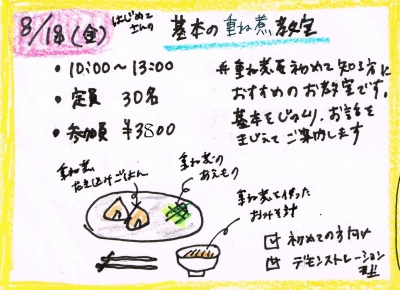 8/18(金)
はじめてさんの
基本の重ね煮教室
・10:00〜13:00
・定員 30名
・参加費 ¥3800
#重ね煮を初めて知る方に
おすすめのお教室です。
基本をじっくり、お話を
まじえてご案内します
重ね煮
炊き込みごはん
重ね煮の
あえもの
重ね煮を使った
おみそ汁
☑ 初めての方向け
☑ デモンストレーション
型